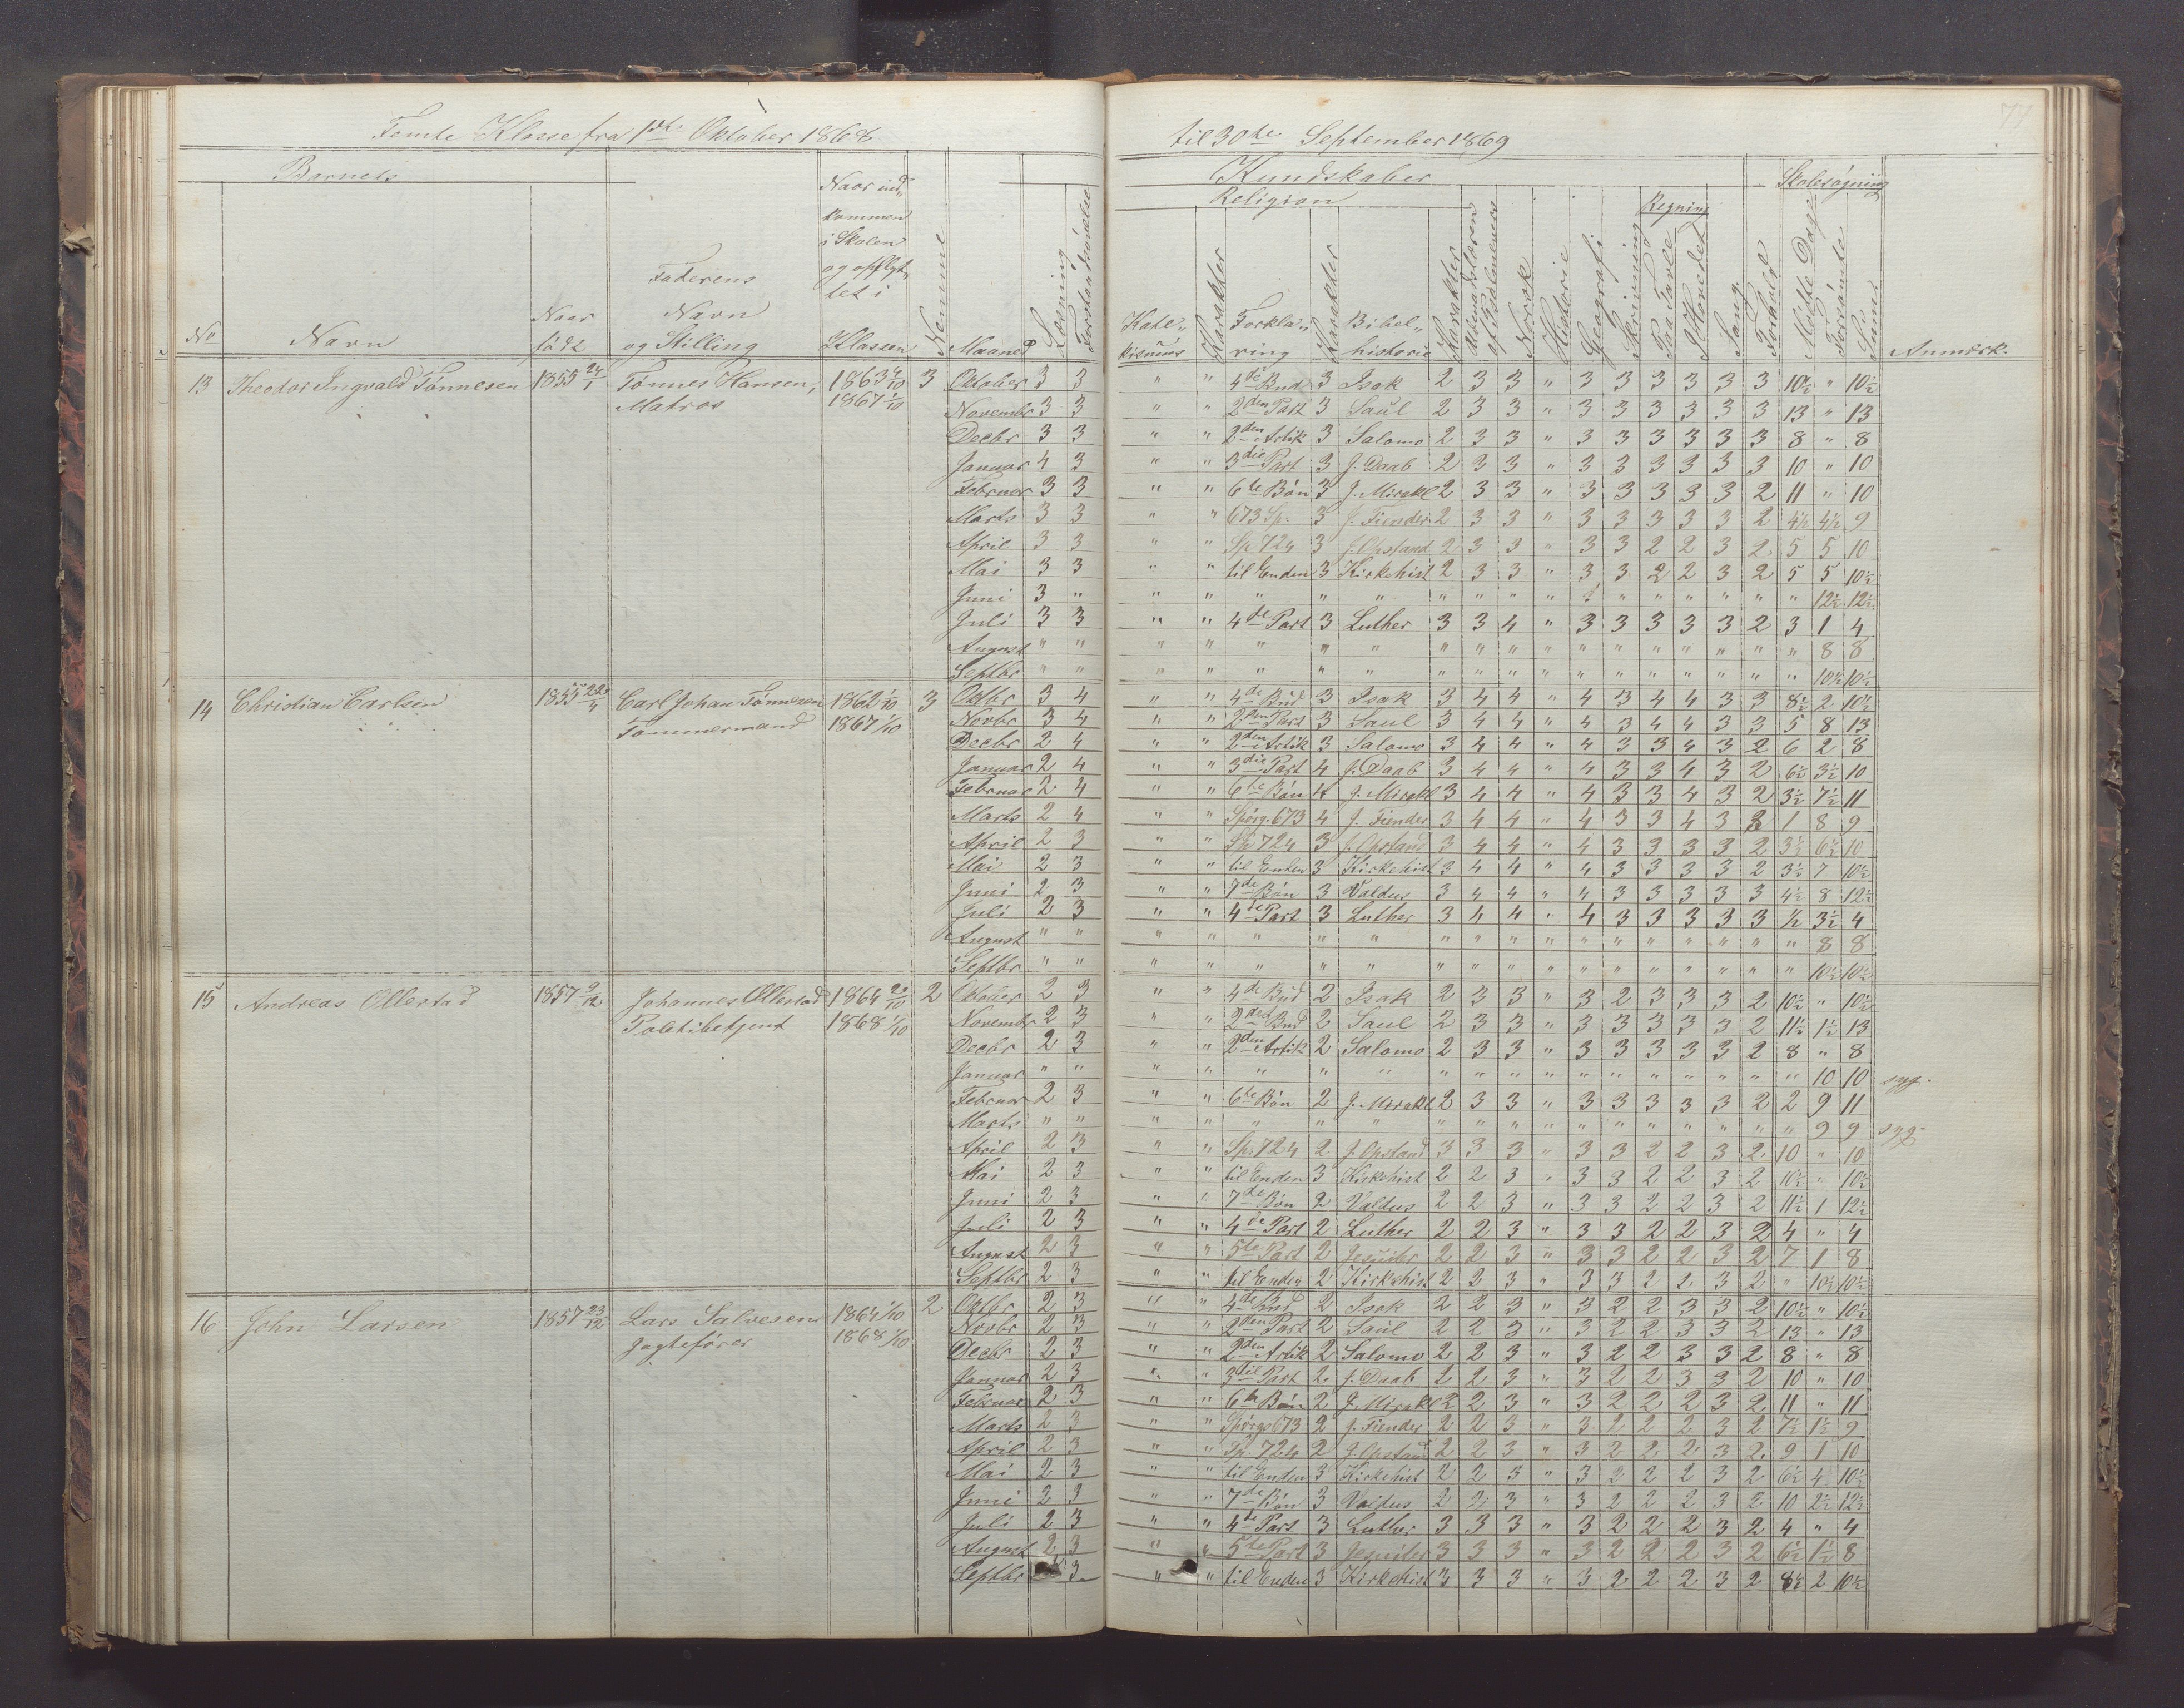 Femte Klasse fra 1ste Oktober 1868 til 30te September 1869
77
Barnets
Kundskaber
Skolesøgning
Religion
Regning
No
Navn
Naar født
Faderens Navn og Stilling
Naar ind„ kommen i Skolen og opflyt„ tet i Klassen
Nummer
Maaned
Læsning
Forstandsøvelse
Kate„ kismus
Karakter
Forkla„ ring
Karakter
Bibel„ historie
Karakter
Norsk
Historie
Geografi
Skrivning
Paa Tavle
I Hovedet
Sang
Forhold
Mødte Dage
Forsømte
Sum
Anmærk.
13 Theodor Ingvald Tønnesen 1855 24/1 Tønnes Hansen, Matros 1863 1/10 1867 1/10 3
Oktober 3 3 " " 4de Bud 3 Isak 2 3 3 " 3 3 3 3 3 3 10½ " 10½
Novembr 3 3 " " 2den Part 3 Saul 2 3 3 " 3 3 3 3 3 3 13 " 13
Decbr 3 3 " " 2den Artik 3 Salomo 2 3 3 " 3 3 3 3 3 3 8 " 8
Januar 4 3 " " 3die Part 3 J. Daab 2 3 3 " 3 3 3 3 3 3 10 " 10
Februar 3 3 " " 6te Bøn 3 J. Mirakl 2 3 3 " 3 3 3 3 3 2 11 " 10
Marts 3 3 " " 673 Sp. 3 J. Fiender 2 3 3 " 3 3 3 3 3 2 4½ 4½ 9
April 3 3 " " Sp 724 3 J. Opstand 2 3 3 " 3 3 2 2 3 2 5 5 10
Mai 3 3 " " til Enden 3 Kirkehist 2 3 3 " 3 3 2 2 3 2 5 5 10½
Juni 3 " " " " " " " " " " " " " " " " " 12½ 12½
Juli 3 3 " " 4de Part 3 Luther 3 3 4 " 3 3 3 3 3 2 3 1 4
August " " " " " " " " " " " " " " " " " " 8 8
Septbr " " " " " " " " " " " " " " " " " " 10½ 10½
14 Christian Carlsen 1855 22/4 Carl Johan Tønnesen Tømmermand 1862 1/10 1867 1/10 3
Octbr 3 4 " " 4de Bud 3 Isak 3 4 4 " 4 3 4 4 3 3 8½ 2 10½
Novbr 3 4 " " 2den Part 3 Saul 3 4 4 " 4 3 4 4 3 3 5 8 13
Decbr 2 4 " " 2den Artik 3 Salomo 3 4 4 " 4 3 3 4 3 2 6 2 8
Januar 2 4 " " 3die Part 4 J. Daab 3 4 4 " 4 3 3 4 3 2 6½ 3½ 10
Februar 2 4 " " 6te Bøn 4 J. Mirakl 3 4 4 " 4 3 3 4 3 2 3½ 7½ 11
Marts 2 4 " " Spørg. 673 4 J. Fiender 3 4 4 " 4 3 3 4 3 2 1 8 9
April 2 3 " " Sp 724 3 J. Opstand 3 4 4 " 4 3 3 3 3 2 3½ 6½ 10
Mai 2 3 " " til Enden 3 Kirkehist 3 4 4 " 4 3 3 3 3 2 3½ 7 10½
Juni 2 3 " " 7de Bøn 3 Valdus 3 4 4 " 4 3 3 3 3 3 4½ 8 12½
Juli 2 3 " " 4de Part 3 Luther 3 4 4 " 4 3 3 3 3 3 ½ 3½ 4
August " " " " " " " " " " " " " " " " " " 8 8
Septbr " " " " " " " " " " " " " " " " " " 10½ 10½
15 Andreas Ollestad 1857 9/12 Johannes Ollestad Politibetjent 1864 20/10 1868 1/10 2
Oktober 2 3 " " 4de Bud 2 Isak 2 3 3 " 3 2 3 3 3 2 10½ " 10½
Novembr 2 3 " " 2det Bud 2 Saul 2 3 3 " 3 3 3 3 3 2 11½ 1½ 13
Decbr 2 3 " " 2den Artik 2 Salomo 2 3 3 " 3 3 3 3 3 2 8 " 8
Januar " " " " " " " " " " " " " " " " " " 10 10 syg.
Februar 2 3 " " 6te Bøn 2 J. Mirakl 2 3 3 " 3 3 3 3 3 2 2 9 11
Marts " " " " " " " " " " " " " " " " " " 9 9 syg.
April 2 3 " " Sp. 724 2 J. Opstand 3 3 3 " 3 3 2 2 3 2 10 " 10
Mai 2 3 " " til Enden 3 Kirkehist 2 2 3 " 3 3 2 2 3 2 10½ " 10½
Juni 2 3 " " 7de Bøn 2 Valdus 2 2 3 " 3 3 2 2 3 2 11½ 1 12½
Juli 2 3 " " 4de Part 2 Luther 2 2 3 " 3 3 2 2 3 2 4 " 4
August 2 3 " " 5te Part 2 Jesuiter 2 2 3 " 3 3 2 2 3 2 7 1 8
Septbr 2 3 " " til Enden 2 Kirkehist 2 2 3 " 3 3 2 2 3 2 " 10½ 10½
16 John Larsen 1857 23/12 Lars Salvesen Jagtefører 1864 1/10 1868 1/10 2
Octbr 2 3 " " 4de Bud 2 Isak 2 2 3 " 3 2 2 3 3 2 10½ " 10½
Novbr 2 3 " " 2den Part 2 Saul 2 2 3 " 3 2 2 3 3 2 13 " 13
Decbr 2 3 " " 2den Artik 2 Salomo 2 2 3 " 3 2 2 3 3 2 8 " 8
Januar 2 3 " " 3die Part 2 J. Daab 2 2 3 " 3 2 2 3 3 2 10 " 10
Februar 2 3 " " 6te Bøn 2 J. Mirakl 2 2 3 " 3 2 2 2 3 2 11 " 11
Marts 2 3 " " Spørgs 673 2 J. Fiender 2 2 3 " 3 2 2 2 3 2 7½ 1½ 9
April 2 3 " " Sp. 724 2 J. Opstand 2 2 3 " 3 2 2 2 3 2 9 1 10
Mai 2 3 " " til Enden 3 Kirkehist 2 2 3 " 3 2 2 2 3 2 6½ 4 10½
Juni 2 3 " " 7de Bøn 3 Valdus 2 2 3 " 3 2 2 2 3 2 10 2½ 12½
Juli 2 3 " " 4de Part 3 Luther 3 3 3 " 3 2 2 2 3 2 4 " 4
August 2 3 " " 5te Part 3 Jesuiter 3 3 3 " 3 2 2 2 3 2 6½ 1½ 8
Septbr 3 " " til Enden 3 Kirkehist 3 3 3 " 3 2 2 2 3 2 8½ 2 10½